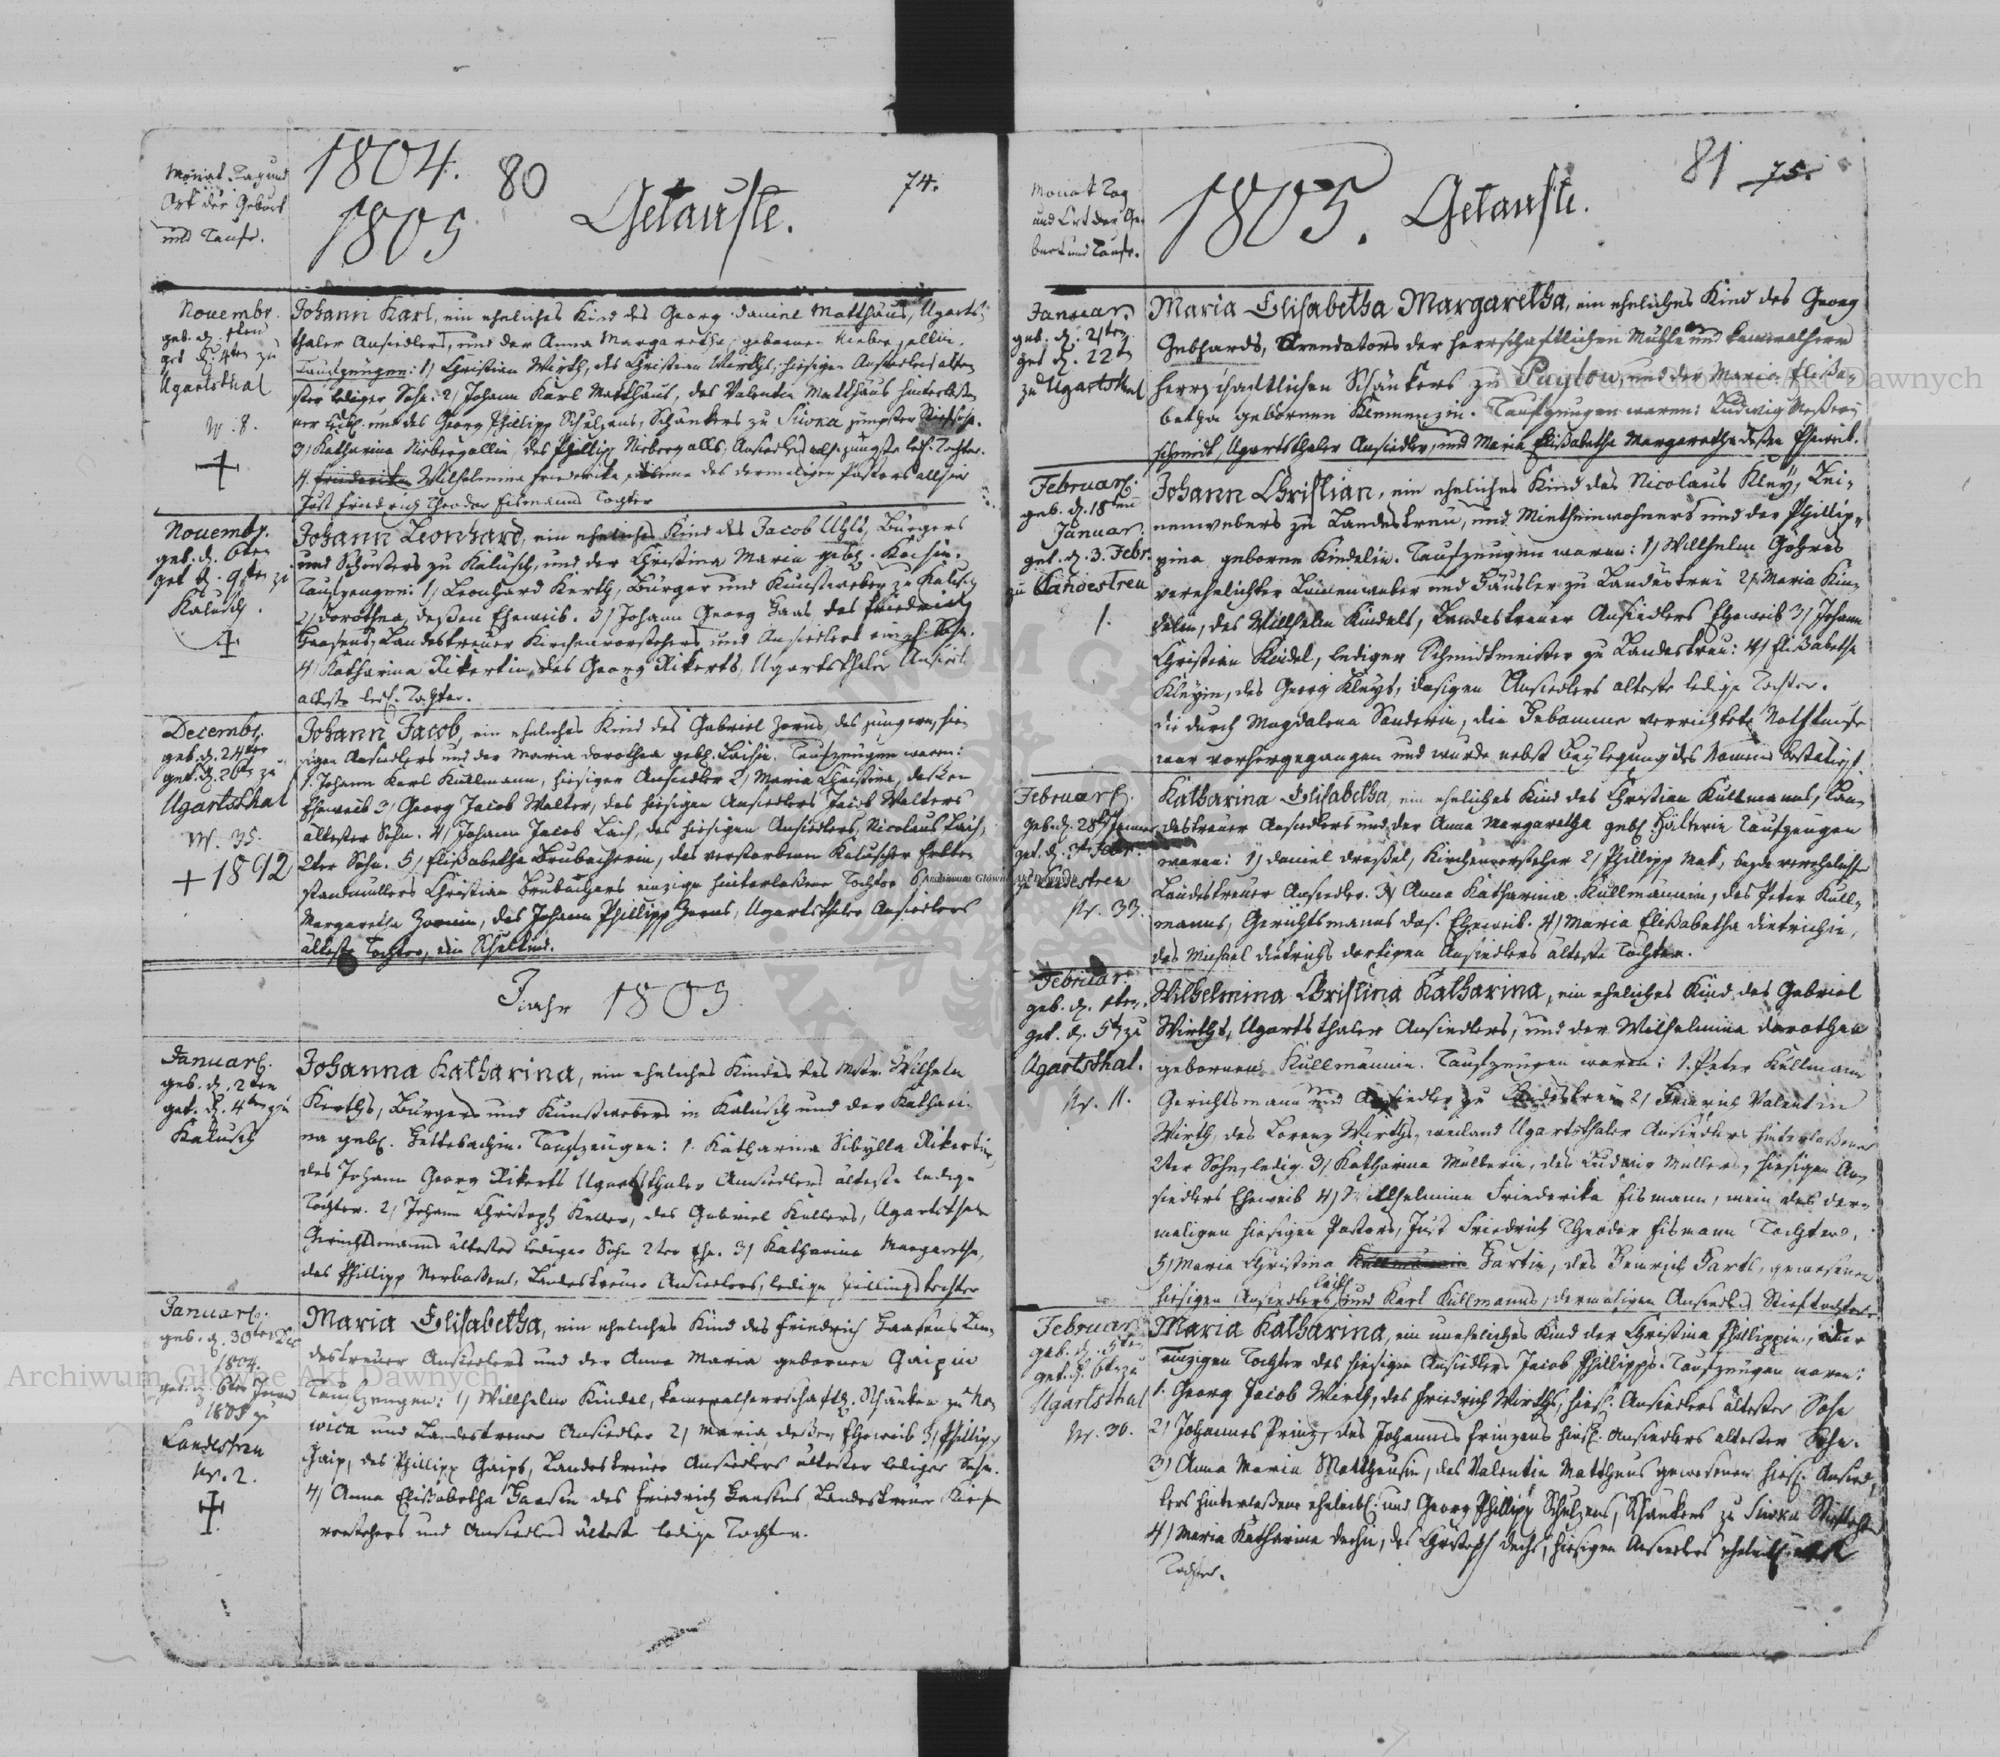 Monat Tag und
Ort der Geburt
und Taufe.
1804. 80
1805
Getaufte.
74.
Novembr.
geb. d.
get. d. 4ten zu
Ugartsthal
Nr. 8.
Johann Karl, ein eheliches Kind des Georg Daniel Matthäus, Ugarts-
thaler Ansiedlers, und der Anna Margaretha, gebornen
Taufzeugen: 1) Christian Wirth, des Christian Wirths, hiesigen Ansiedlers
ster lediger Sohn. 2) Johann Karl Matthäus, des Valentin Matthäus hinterlaße-
ner und des Georg Phillipp Schulzens, Schänkers zu Siwka jüngster Stiefsohn.
3) Katharina Niebergallin, des Phillipp Niebergalls, Ansiedlers jüngste led. Tochter.
4. Wilhelmina Friederika, des dermaligen Pastors allhier
Just Friedrich Theodor Eismann Tochter
Novembr.
geb. d. 6ten
get. d. 9ten zu
Kalusch.
Johann Leonhard, ein eheliches Kind des Jacob Uhls, Bürgers
und Schusters zu Kalusch, und der Christina Maria geb.
Taufzeugen: 1) Leonhard Kerth, Bürger und Kunstweber zu Kalusch
2) Dorothea, deßen Eheweib. 3) Johann Georg Haas des Friedrich
Haasens, Landestreuer Kirchenvorstehers und Ansiedlers Sohn.
4) Katharina Rikertin, des Georg Rikerts, Ugartsthaler Ansiedl.
älteste led. Tochter.
Decembr.
geb. d. 24ten
get. d. 26ten zu
Ugartsthal
Nr. 35.
+ 1892
Johann Jacob, ein eheliches Kind des Gabriel Zorns, des jüngern, hie-
sigen Ansiedlers und der Maria Dorothea geb. Taufzeugen waren:
1. Johann Karl Kullmann, hiesiger Ansiedler 2) Maria Christina, deßen
Eheweib 3) Georg Jacob Walter, des hiesigen Ansiedlers Jacob Walters
ältester Sohn. 4) Johann Jacob des hiesigen Ansiedlers, Nicolaus
2ter Sohn. 5) Elisabetha Brubacherin, des verstorbenen Kaluscher
Christian Brubachers einzige hinterlaßene Tochter 6)
Margaretha Zornin, des Johann Phillipp Zorns, Ugartsthaler Ansiedlers
älteste Tochter, ein Schulkind.
Jahr 1805
Januar.
geb. d. 2ten
get. d. 4ten zu
Kalusch
Johanna Katharina, ein eheliches Kind des Mstr. Wilhelm
Kerths, Bürgers und Kunstwebers in Kalusch und der Kathari-
na geb. Taufzeugen: 1. Katharina Sibylla Rikertin,
des Johann Georg Rikerts Ugartsthaler Ansiedlers älteste ledige
Tochter. 2) Johann Christoph Keller, des Gabriel Kellers, Ugartsthaler
Gerichtsmanns ältester lediger Sohn 2ter Ehe. 3) Katharina Margaretha,
des Phillipp Landestreuer Ansiedlers, ledige Zwillingstochter
Januar.
geb. d. 30ten Dec
1804.
get. d. 6ten Jenner
1805 zu
Landestreu
Nr. 2.
Maria Elisabetha, ein eheliches Kind des Friedrich Haasens Lan-
destreuer Ansiedlers und der Anna Maria gebornen Gaipin
Taufzeugen: 1) Willhelm Kindel, kameralherrschaftl. Schänker zu
und Landestreuer Ansiedler 2) Maria, deßen Eheweib 3) Phillipp
Gaip, des Phillipp Gaips, Landestreuer Ansiedlers ältester lediger Sohn.
4) Anna Elisabetha Haasin des Friedrich Haasens, Landestreuer
vorstehers und Ansiedlers älteste ledige Tochter.
Monat Tag
und Ort der Ge-
burt und Taufe.
1805. Getaufte.
81 75.
Januar.
geb. d. 21ten
get. d. 22ten
zu Ugartsthal
Maria Elisabetha Margaretha, ein eheliches Kind des Georg
Gebhards, Arendators der herrschaftlichen Mühle und kameral
herrschaftlichen Schänkers zu und der Maria Elisa-
betha gebornen Taufzeugen waren: Ludwig
schmidt, Ugartsthaler Ansiedler, und Maria Elisabetha Margaretha deßen Eheweib.
Februar.
geb. d. 18ten
Januar.
get. d. 3. Febr.
zu Landestreu
1.
Johann Christian, ein eheliches Kind des Nicolaus Kley, Lei-
nenwebers zu Landestreu, und Mietheinwohners und der Phillip-
pina geborne Kindelin. Taufzeugen waren: 1) Willhelm
verehelichter Leinenweber und Häusler zu Landestreu 2) Maria Kin-
delin, des Willhelm Kindels, Landestreuer Ansiedlers Eheweib 3) Johann
Christian Kindel, lediger Schmidtmeister zu Landestreu: 4) Elisabetha
Kleyin, des Georg Kleys, dasigen Ansiedlers älteste ledige Tochter.
die durch Magdalena Sanderin, die Hebamme verrichtete Nothtaufe
war vorhergegangen und wurde nebst Beylegung des Namens bestätigt
Februar.
geb. d. 28ten Jenner
get. d. 3t. Febr.
zu Landestreu
Nr. 33.
Katharina Elisabetha, ein eheliches Kind des Christian Kullmanns, Lan-
destreuer Ansiedlers und der Anna Margaretha geb. Taufzeugen
waren: 1) Daniel Kirchenvorsteher 2) Phillipp beyde verehelichte
Landestreuer Ansiedler. 3) Anna Katharina Kullmännin, des Peter Kull-
manns, Gerichtsmanns das. Eheweib. 4) Maria Elisabetha Dietrichin,
des Michel Dietrichs dortigen Ansiedlers älteste Tochter.
Februar.
geb. d. 1ten
get. d. 5ten zu
Ugartsthal.
Nr. 11.
Wilhelmina Christina Katharina, ein eheliches Kind des Gabriel
Wirths, Ugartsthaler Ansiedlers, und der Wilhelmina Dorothea
gebornen Kullmännin. Taufzeugen waren: 1. Peter Kullmann
Gerichtsmann und Ansiedler zu Landestreu 2) Heinrich Valentin
Wirth, des Lorenz Wirths, weiland Ugartsthaler Ansiedlers hinterlaßener
2ter Sohn, ledig. 3) Katharina Müllerin, des Ludwig Müllers, hiesigen An-
siedlers Eheweib 4) Willhelmina Friederika Eismann, mein des der-
maligen hiesigen Pastors, Just Friedrich Theodor Eismann Tochter,
5) Maria Christina Hartin, des Heinrich Harts, gewesenen
hiesigen Ansiedlers und Karl Kullmanns, dermaligen Ansiedlers Stieftochter.
Februar.
geb. d. 5ten
get. d. 6ten zu
Ugartsthal
Nr. 30.
Maria Katharina, ein uneheliches Kind der Christina Phillippin, der
einzigen Tochter des hiesigen Ansiedlers Jacob Phillipps. Taufzeugen waren:
1. Georg Jacob Wirth, des Friedrich Wirths, hies. Ansiedlers ältester Sohn
2) Johannes Prinz, des Johannes Prinzens hies. Ansiedlers ältester Sohn.
3) Anna Maria Matthäusin, des Valentin Matthäus gewesenen hies. Ansied-
lers hinterlaßene und Georg Phillipp Schulzens, Schänkers zu Siwka Stieftochter
4) Maria Katharina des Christoph hiesigen Ansiedlers
Tochter.
Archiwum Główne Akt Dawnych
Archiwum Główne Akt Dawnych
Archiwum Główne Akt Dawnych